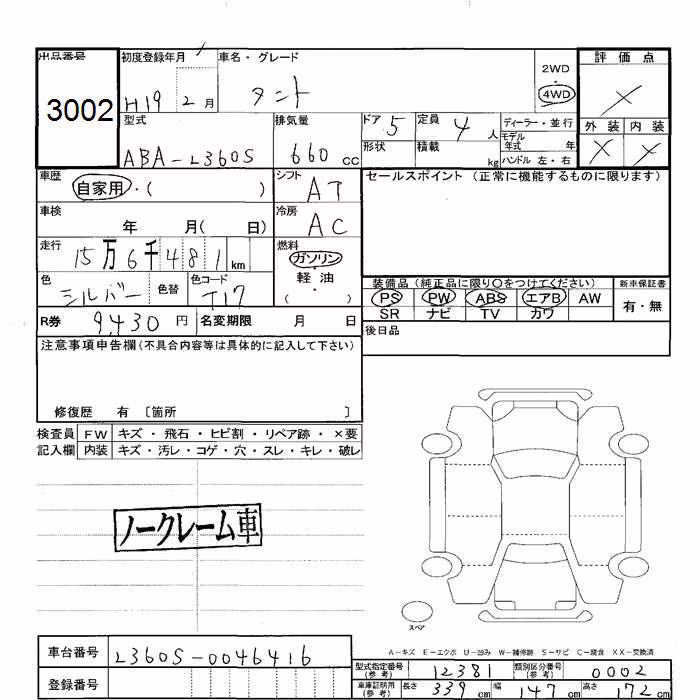 出品番号 初度登録年月 車名・グレード 2WD 評価点
3002 H19 2月 タント 4WD ×
型式 排気量 ドア 5 定員 4人 ディーラー・並行 外装 内装
モデル年式 年
ABA-L360S 660cc 形状 積載 kg ハンドル 左・右 × ×
車歴 自家用・( ) シフト AT セールスポイント (正常に機能するものに限ります)
車検 年 月( 日) 冷房 AC
走行 15万6千481km 燃料 ガソリン
軽油
( ・ )
色 シルバー 色替 色コード T17 装備品(純正品に限り○をつけてください) 新車保証書
PS PW ABS エアB AW 有・無
R券 9,430円 名変期限 月 日 SR ナビ TV カワ
後日品
注意事項申告欄(不具合内容等は具体的に記入して下さい)
修復歴 有 〔箇所 〕
検査員 FW キズ・飛石・ヒビ割・リペア跡・×要
記入欄 内装 キズ・汚レ・コゲ・穴・スレ・キレ・破レ
ノークレーム車
スペア
A-キズ E-エクボ U-凹み W-補修跡 S-サビ C-腐食 XX-交換済
車台番号 L360S-0046416 型式指定番号(参考) 12381 類別区分番号(参考) 0002
登録番号 車庫証明用(参考) 長さ 339cm 幅 147cm 高さ 172cm